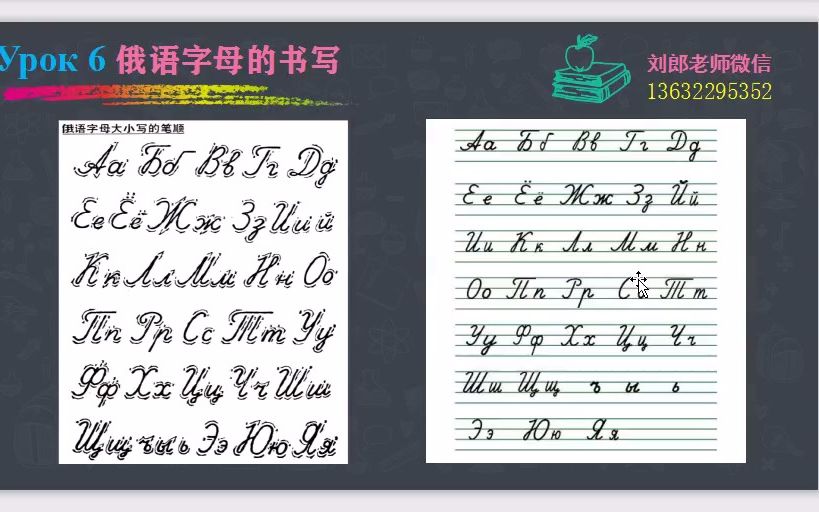 Урок 6 俄语字母的书写
刘郎老师微信
13632295352
俄语字母大小写的笔顺
Аа Бб Вв Гг Дд
Ее Ёё Жж Зз Ии й
Кк Лл Мм Нн Оо
Пп Рр Сс Тт Уу
Фф Хх Цц Чч Шш
Щщ ъ ы ь Ээ Юю Яя
Аа Бб Вв Гг Дд
Ее Ёё Жж Зз Йй
Ии Кк Лл Мм Нн
Оо Пп Рр Сс Тт
Уу Фф Хх Цц Чч
Шш Щщ ъ ы ь
Ээ Юю Яя